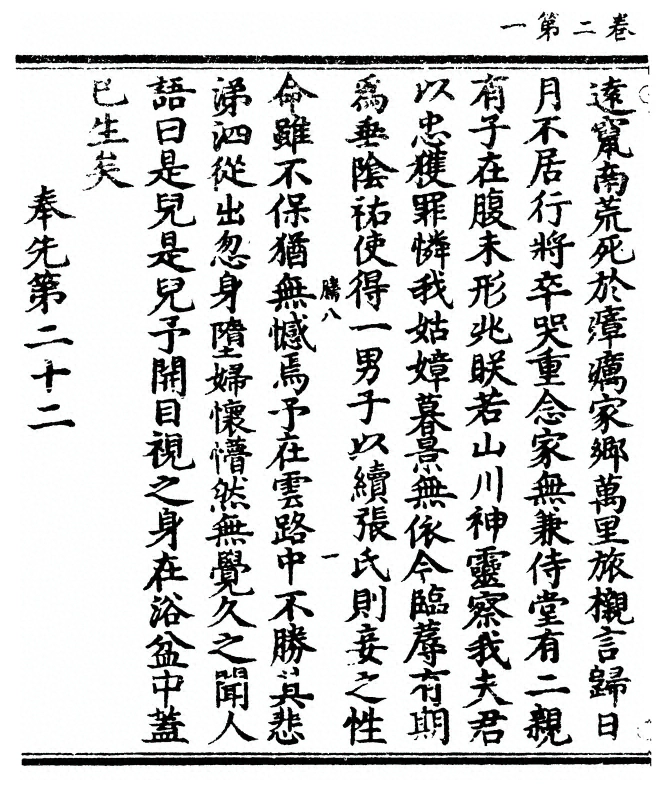 卷二第一
遠竄南荒死於瘴癘家鄉萬里旅櫬言歸日
月不居行將卒哭重念家無兼侍堂有二親
有子在腹未形兆眹若山川神靈察我夫君
以忠獲罪憐我姑嫜暮景無依今臨蓐有期
爲垂陰祐使得一男子以續張氏則妾之性
命雖不保猶無憾焉予在雲路中不勝其悲
騰八
一
涕泗從出忽身墮婦懷懵然無覺久之聞人
語曰是兒是兒予開目視之身在浴盆中蓋
已生矣
奉先第二十二